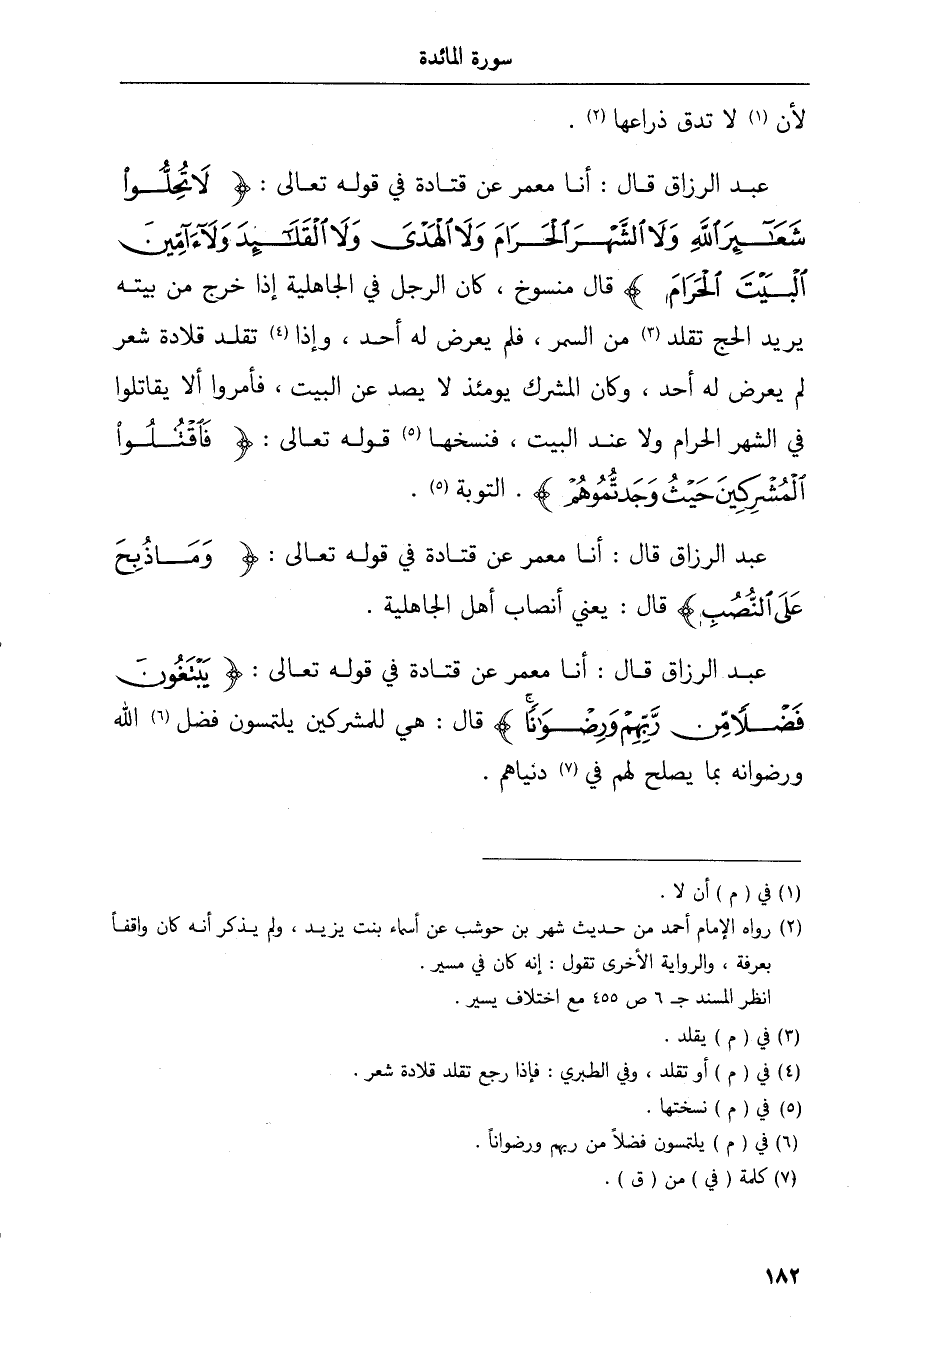 سورة المائدة
لأن (١) لا تدق ذراعها (٢) .
عبد الرزاق قال : أنا معمر عن قتادة في قوله تعالى : ﴿ لَا تُحِلُّوا۟
شَعَـٰٓئِرَ ٱللَّهِ وَلَا ٱلشَّهْرَ ٱلْحَرَامَ وَلَا ٱلْهَدْىَ وَلَا ٱلْقَلَـٰٓئِدَ وَلَآ ءَآمِّينَ
ٱلْبَيْتَ ٱلْحَرَامَ ﴾ قال منسوخ ، كان الرجل في الجاهلية إذا خرج من بيته
يريد الحج تقلد (٣) من السمر ، فلم يعرض له أحد ، وإذا (٤) تقلد قلادة شعر
لم يعرض له أحد ، وكان المشرك يومئذ لا يصد عن البيت ، فأمروا ألا يقاتلوا
في الشهر الحرام ولا عند البيت ، فنسخها (٥) قوله تعالى : ﴿ فَٱقْتُلُوا۟
ٱلْمُشْرِكِينَ حَيْثُ وَجَدتُّمُوهُمْ ﴾ . التوبة (٥) .
عبد الرزاق قال : أنا معمر عن قتادة في قوله تعالى : ﴿ وَمَا ذُبِحَ
عَلَى ٱلنُّصُبِ ﴾ قال : يعني أنصاب أهل الجاهلية .
عبد الرزاق قال : أنا معمر عن قتادة في قوله تعالى : ﴿ يَبْتَغُونَ
فَضْلًا مِّن رَّبِّهِمْ وَرِضْوَٰنًا ۚ ﴾ قال : هي للمشركين يلتمسون فضل (٦) الله
ورضوانه بما يصلح لهم في (٧) دنياهم .
(١) في ( م ) أن لا .
(٢) رواه الإمام أحمد من حديث شهر بن حوشب عن أسماء بنت يزيد ، ولم يذكر أنه كان واقفاً
بعرفة ، والرواية الأخرى تقول : إنه كان في مسير .
انظر المسند جـ ٦ ص ٤٥٥ مع اختلاف يسير .
(٣) في ( م ) يقلد .
(٤) في ( م ) أو تقلد ، وفي الطبري : فإذا رجع تقلد قلادة شعر .
(٥) في ( م ) نسختها .
(٦) في ( م ) يلتمسون فضلاً من ربهم ورضواناً .
(٧) كلمة ( في ) من ( ق ) .
١٨٢